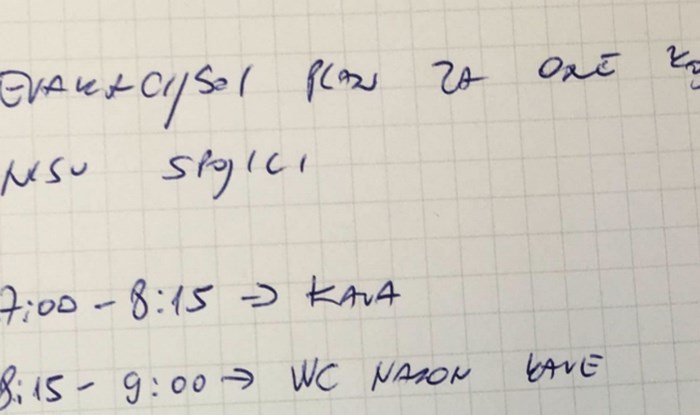 EVAKACIJSKI PLAN ZA ONE
NISU SPOJICI
7:00 - 8:15 → KAVA
8:15 - 9:00 → WC NAKON KAVE